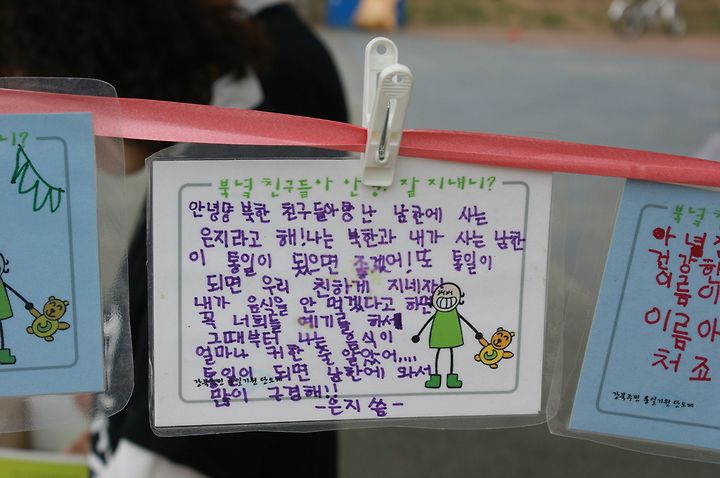 북녘 친구들아 안녕 잘 지내니?
안녕 북한 친구들아 난 남한에 사는
은지라고 해! 나는 북한과 내가 사는 남한
이 통일이 됬으면 좋겠어! 또 통일이
되면 우리 친하게 지네자!
내가 음식을 안 먹겠다고 하면
꼭 너희들 예기를 하셔
그때부터 나는 음식이
얼마나 귀한 줄 알았어....
통일이 되면 남한에 와서
많이 구경해!!
-은지 씀-
니?
북녘
아녕
건강한
이름이
이름아
처 죄